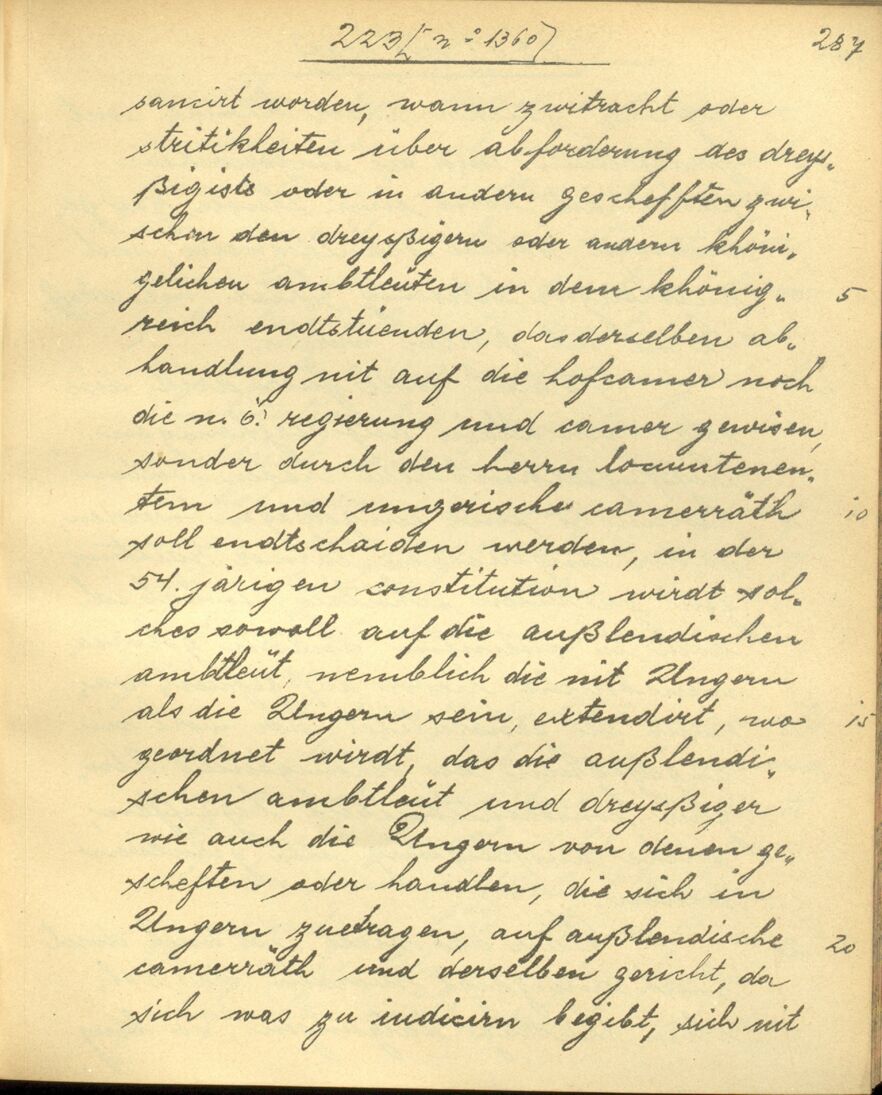 223 [n o 1360]
287
sancirt worden, wann zwitracht oder
stritikheiten über abforderung des dreys„
ßigists oder in andern geschefften zwi„
schen den dreysßigern oder andern khöni„
gelichen ambtleüten in dem khönig„ 5
reich endtstüenden, das derselben ab„
handlung nit auf die hofcamer noch
die n. ö. regierung und camer gewisen,
sonder durch den herrn locumtenen„
tem und ungerische camerräth 10
soll endtschaiden werden, in der
54. järigen constitution wirdt sol„
ches sowoll auf die außlendischen
ambtleüt, nemblich die nit Ungern
als die Ungern sein, extendirt, wo 15
geordnet wirdt, das die außlendi„
schen ambtleüt und dreysßiger
wie auch die Ungern von denen ge„
scheften oder handlen, die sich in
Ungern zuetragen, auf außlendische 20
camerräth und derselben gericht, da
sich was zu iudicirn begibt, sich nit